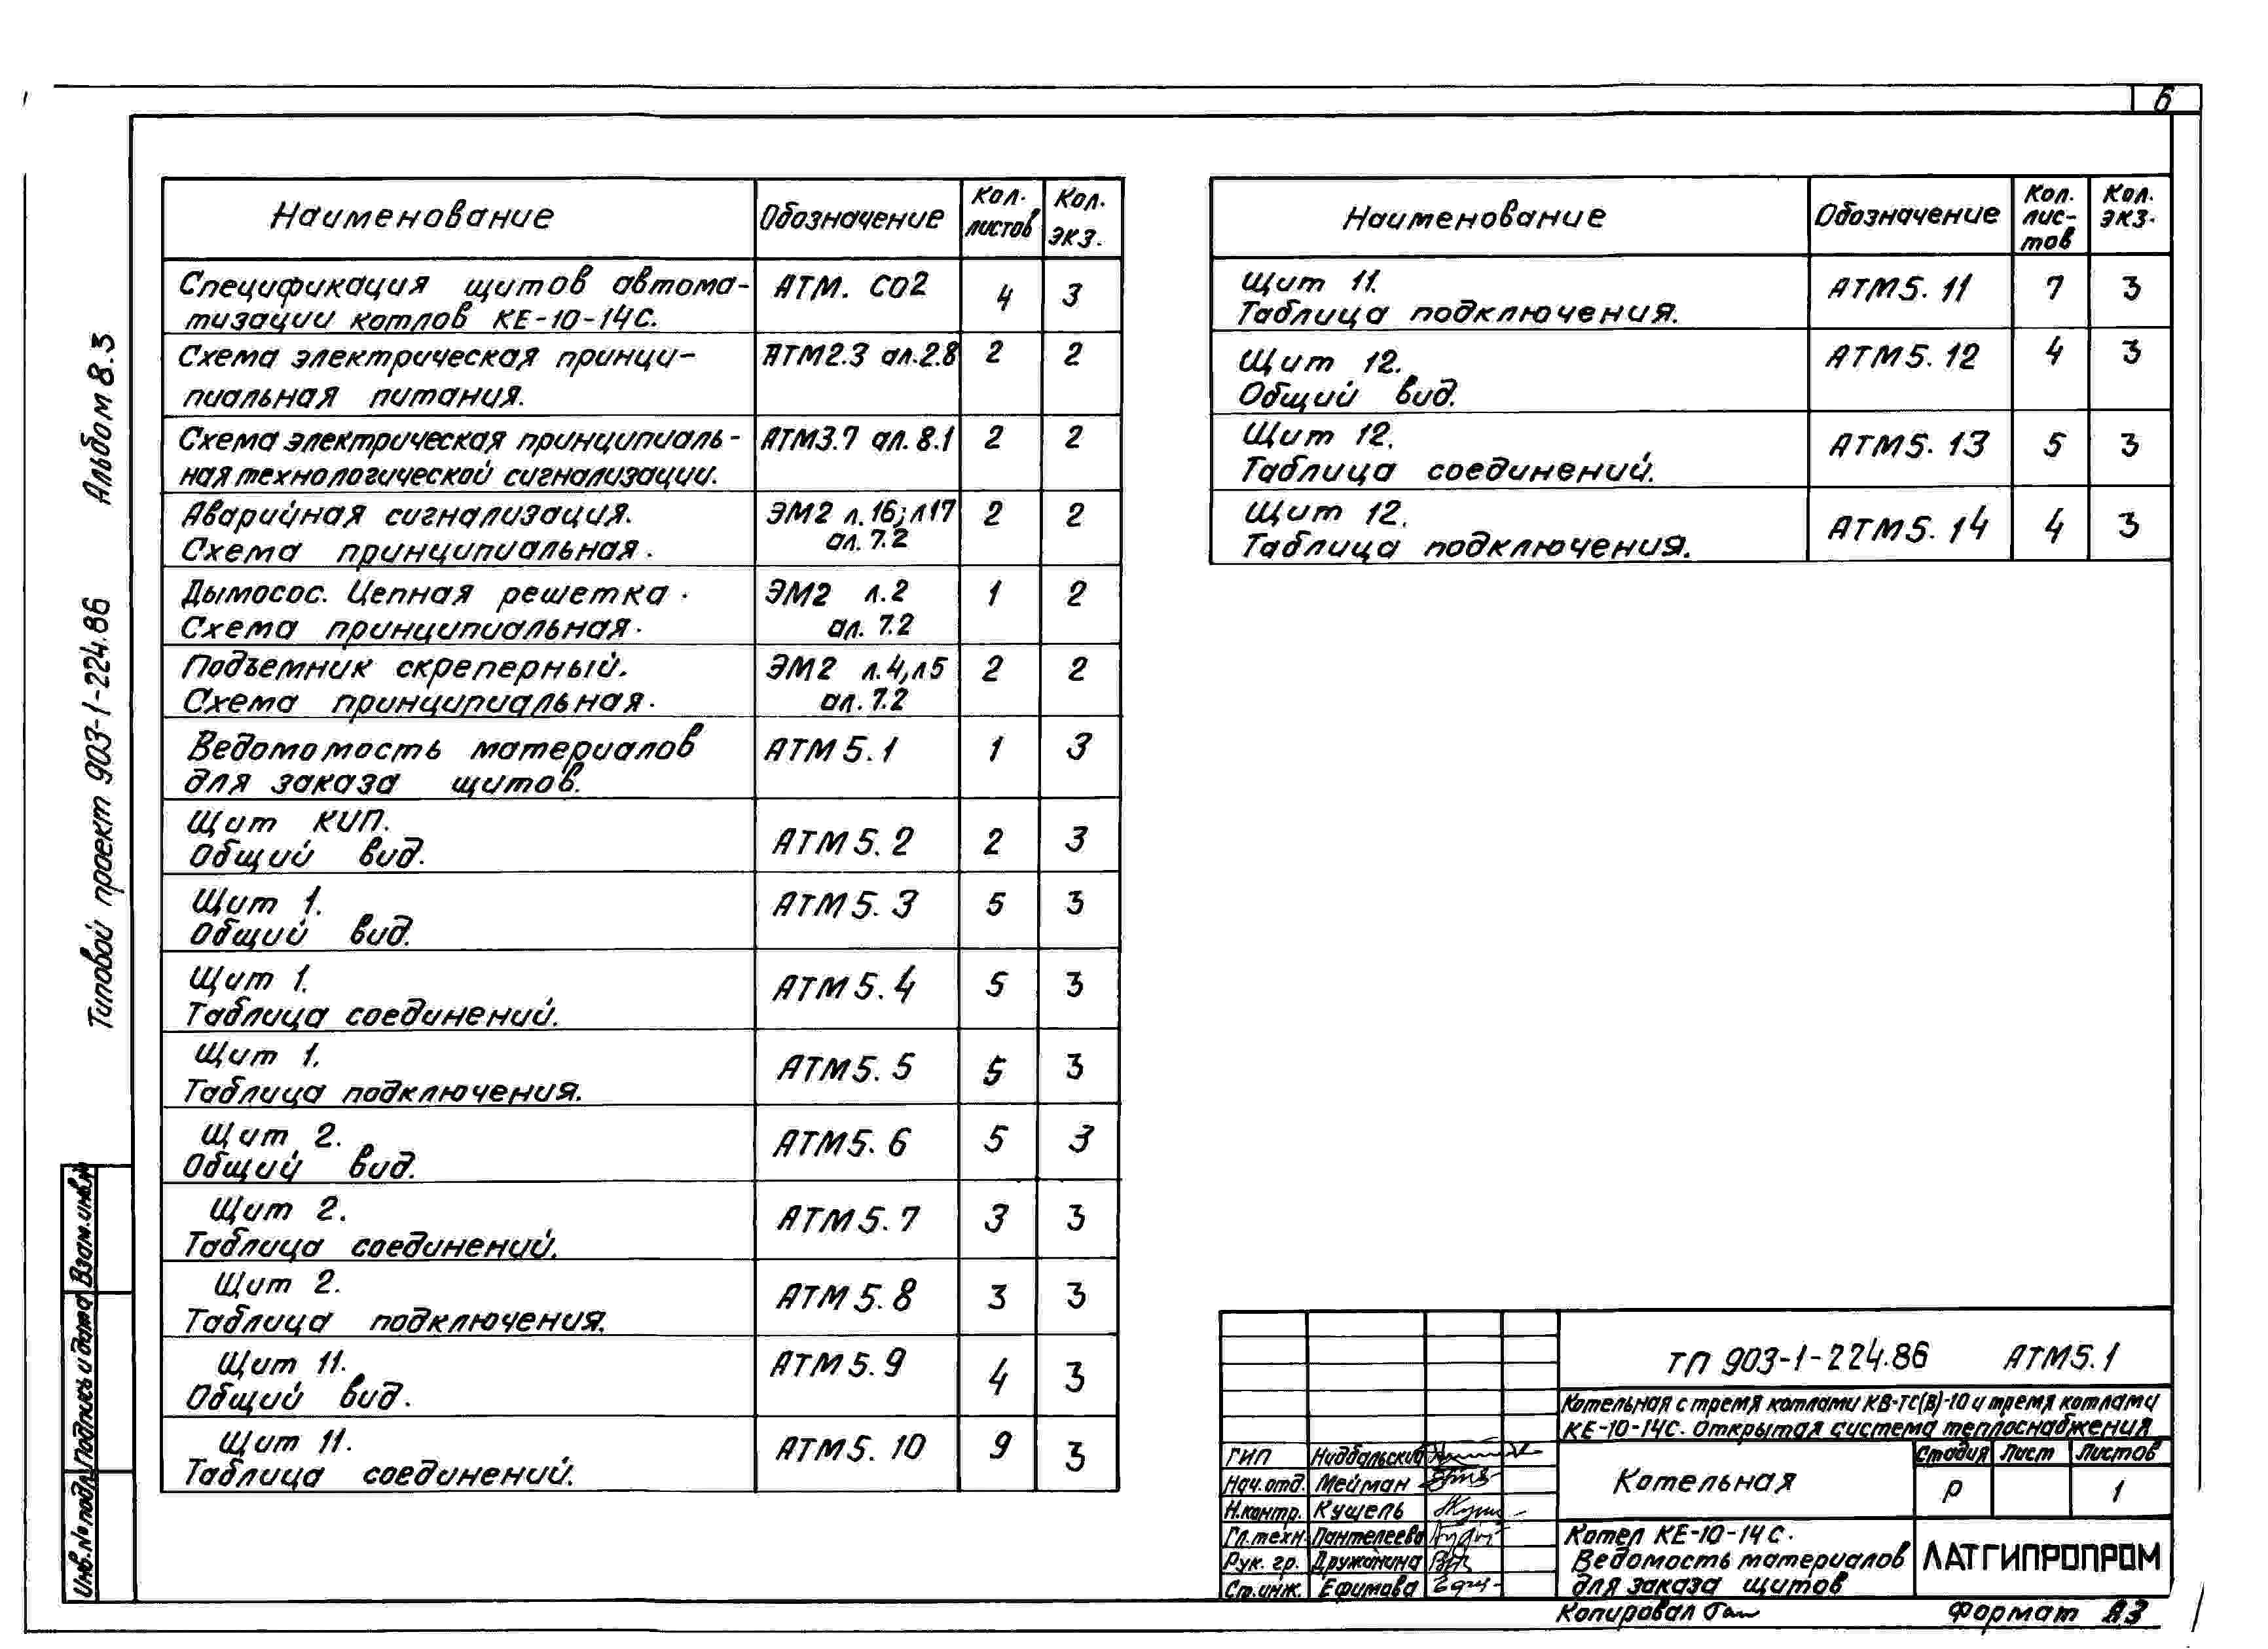 6
Альбом 8.3
Типовой проект 903-1-224.86
Взам.инв.№
Подпись и дата
Инв.№подл.
Наименование Обозначение Кол. листов Кол. экз.
Спецификация щитов автома-
тизации котлов КЕ-10-14С. АТМ. СО2 4 3
Схема электрическая принци-
пиальная питания. АТМ2.3 ал.2.8 2 2
Схема электрическая принципиаль-
ная технологической сигнализации. АТМ3.7 ал. 8.1 2 2
Аварийная сигнализация. ЭМ2 л.16; л17 2 2
Схема принципиальная. ал. 7.2
Дымосос. Цепная решетка. ЭМ2 л.2 1 2
Схема принципиальная. ал. 7.2
Подъемник скреперный. ЭМ2 л.4, л5 2 2
Схема принципиальная. ал. 7.2
Ведомомость материалов АТМ 5.1 1 3
для заказа щитов.
Щит КИП.
Общий вид. АТМ 5.2 2 3
Щит 1. АТМ 5.3 5 3
Общий вид.
Щит 1. АТМ 5.4 5 3
Таблица соединений.
Щит 1. АТМ 5.5 5 3
Таблица подключения.
Щит 2. АТМ 5.6 5 3
Общий вид.
Щит 2. АТМ 5.7 3 3
Таблица соединений.
Щит 2. АТМ 5.8 3 3
Таблица подключения.
Щит 11. АТМ 5.9 4 3
Общий вид.
Щит 11. АТМ 5.10 9 3
Таблица соединений.
Наименование Обозначение Кол. лис-тов Кол. экз.
Щит 11. АТМ5.11 7 3
Таблица подключения.
Щит 12. АТМ5.12 4 3
Общий вид.
Щит 12. АТМ5.13 5 3
Таблица соединений.
Щит 12. АТМ5.14 4 3
Таблица подключения.
ТП 903-1-224.86 АТМ5.1
Котельная с тремя котлами КВ-ТС(В)-10 и тремя котлами
КЕ-10-14С. Открытая система теплоснабжения
ГИП Нидбальский
Нач.отд. Мейман
Н.контр. Кущель
Гл.техн. Пантелеева
Рук. гр. Дружинина
Ст.инж. Ефимова
Котельная
Стадия Лист Листов
Р 1
Котел КЕ-10-14С.
Ведомость материалов
для заказа щитов
ЛАТГИПРОПРОМ
Копировал
Формат А3